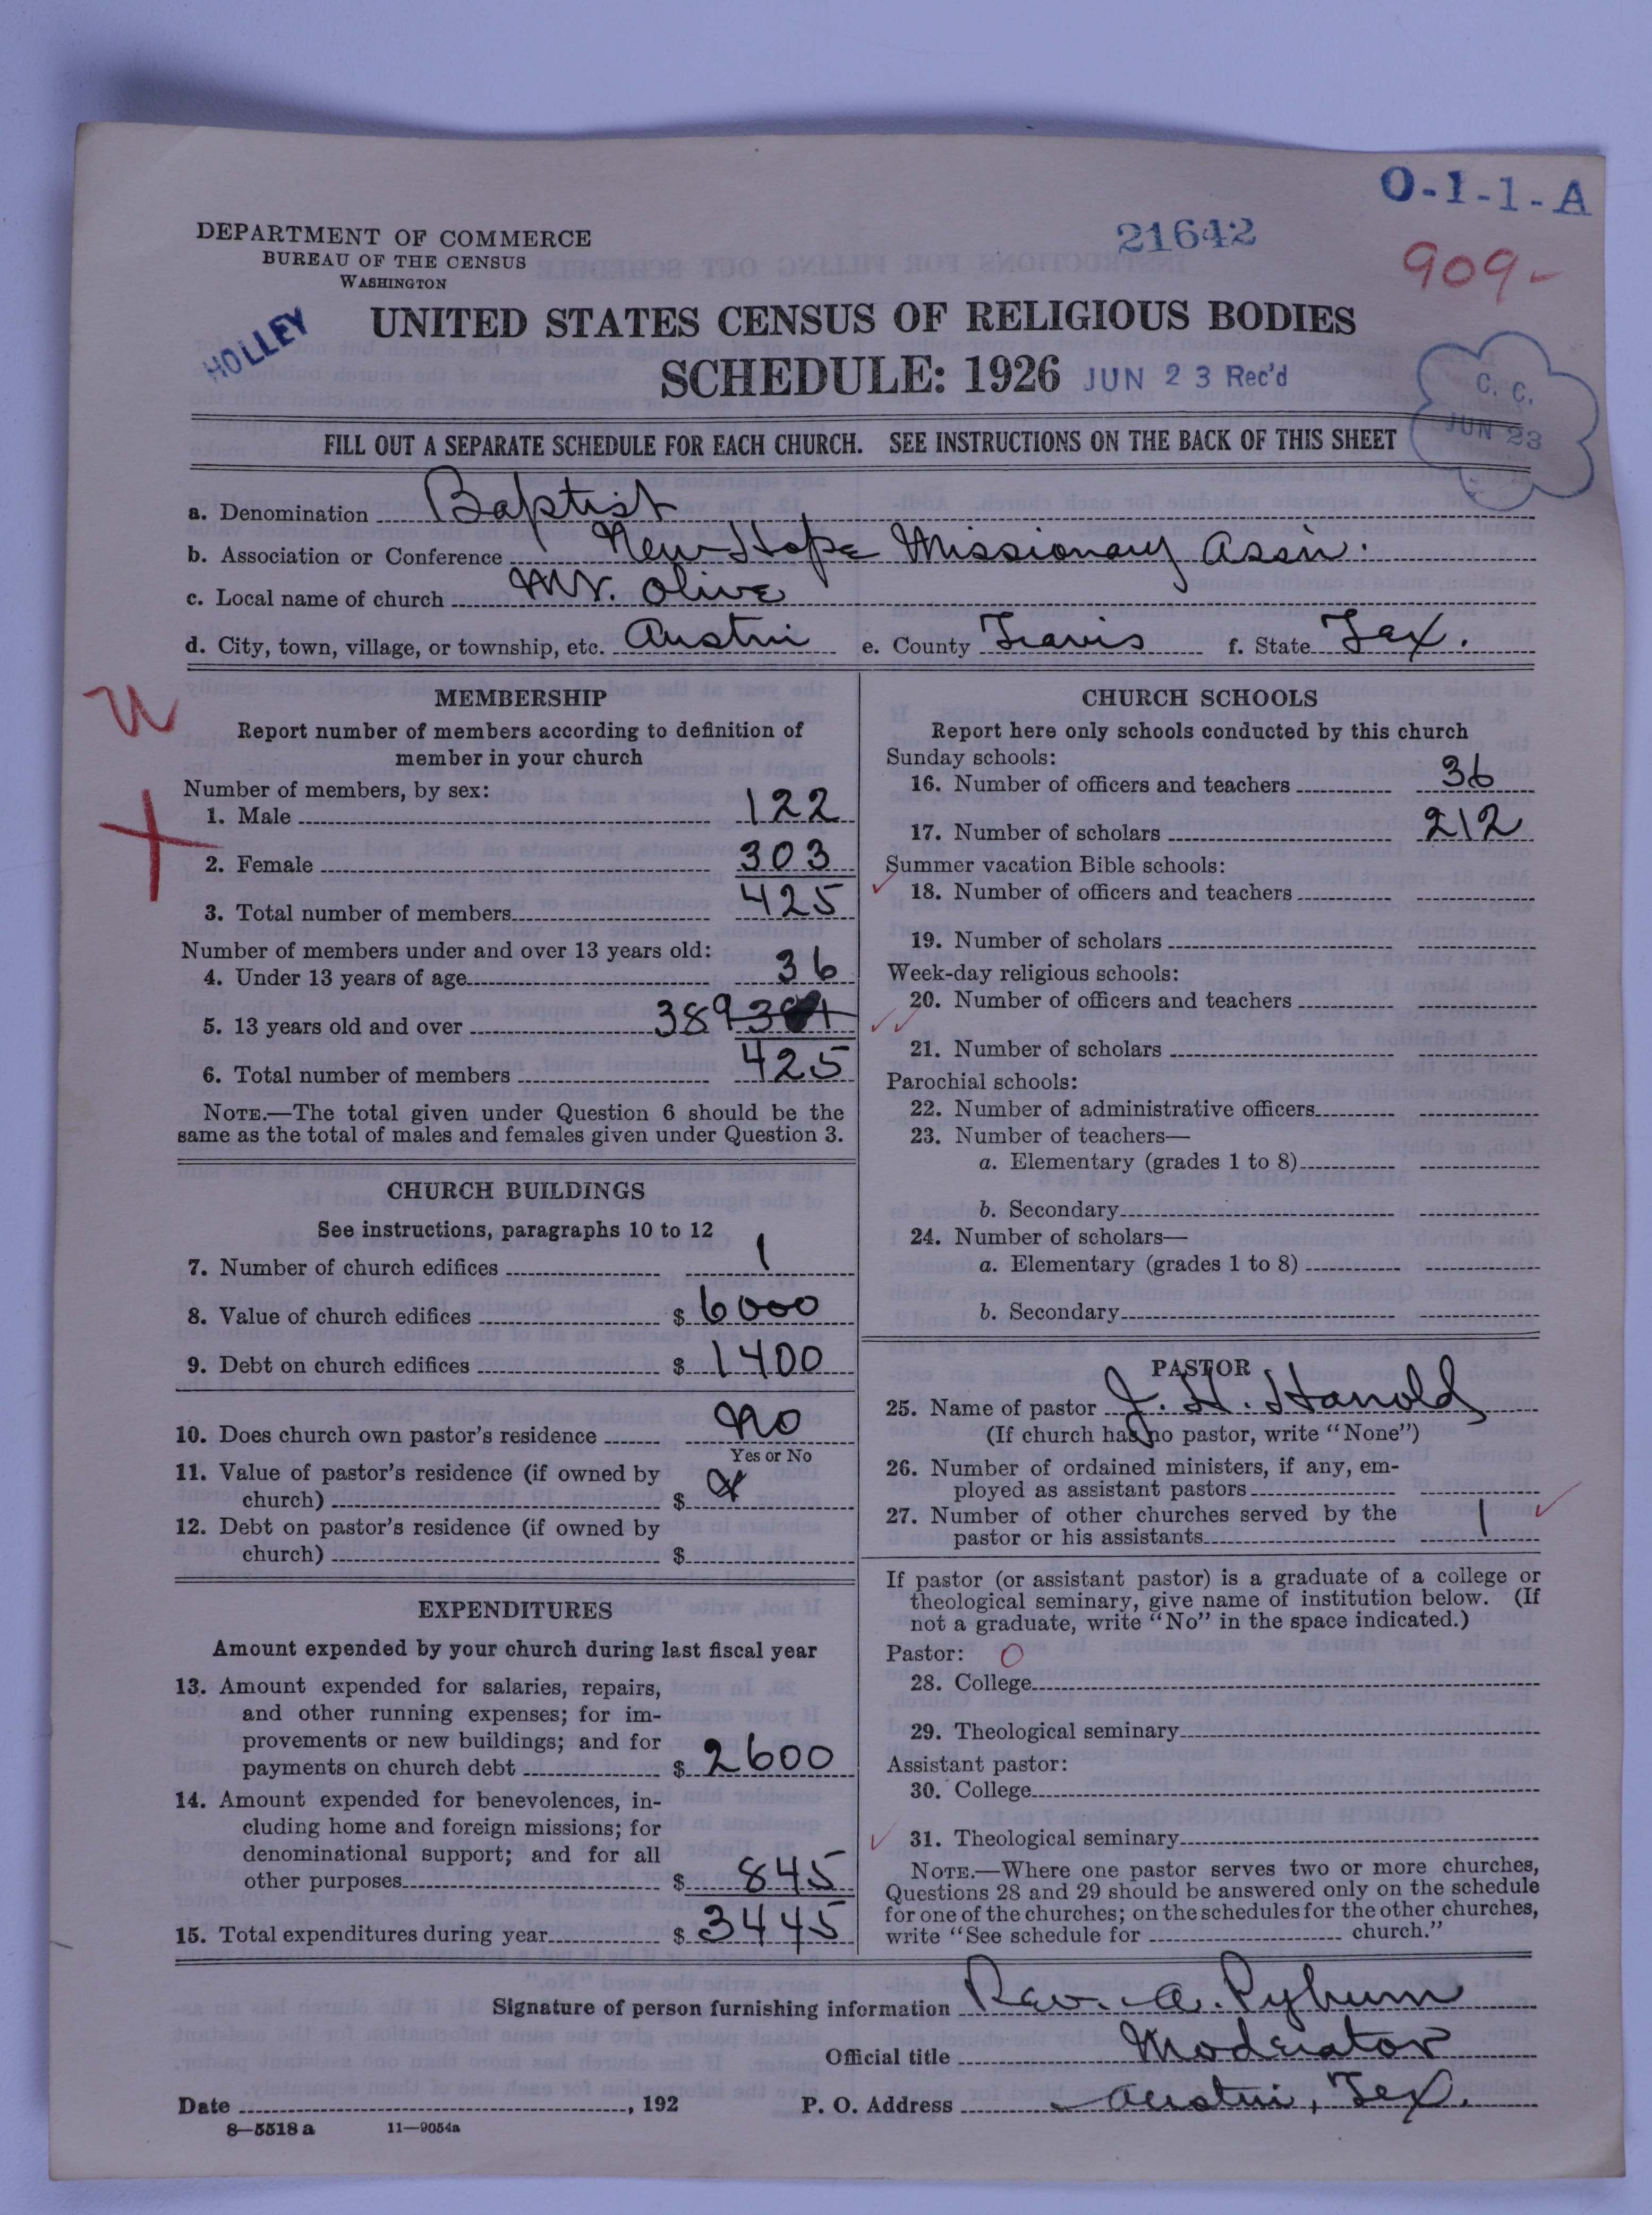 O-1-1-A
DEPARTMENT OF COMMERCE
BUREAU OF THE CENSUS
WASHINGTON
21642
909-
HOLLEY
UNITED STATES CENSUS OF RELIGIOUS BODIES
SCHEDULE: 1926 JUN 23 Rec'd
C. C.
JUN 23
FILL OUT A SEPARATE SCHEDULE FOR EACH CHURCH. SEE INSTRUCTIONS ON THE BACK OF THIS SHEET
a. Denomination Baptist
b. Association or Conference New Hope Missionary Assn.
c. Local name of church Mt. Olive
d. City, town, village, or township, etc. Austin e. County Travis f. State Tex.
MEMBERSHIP
Report number of members according to definition of
member in your church
Number of members, by sex:
1. Male 122
2. Female 303
3. Total number of members 425
Number of members under and over 13 years old:
4. Under 13 years of age 36
5. 13 years old and over 389
6. Total number of members 425
NOTE.—The total given under Question 6 should be the
same as the total of males and females given under Question 3.
CHURCH BUILDINGS
See instructions, paragraphs 10 to 12
7. Number of church edifices 1
8. Value of church edifices $ 6000
9. Debt on church edifices $ 1400
10. Does church own pastor's residence No
Yes or No
11. Value of pastor's residence (if owned by
church) $
12. Debt on pastor's residence (if owned by
church) $
EXPENDITURES
Amount expended by your church during last fiscal year
13. Amount expended for salaries, repairs,
and other running expenses; for im-
provements or new buildings; and for
payments on church debt $ 2600
14. Amount expended for benevolences, in-
cluding home and foreign missions; for
denominational support; and for all
other purposes $ 845
15. Total expenditures during year $ 3445
CHURCH SCHOOLS
Report here only schools conducted by this church
Sunday schools:
16. Number of officers and teachers 36
17. Number of scholars 212
Summer vacation Bible schools:
18. Number of officers and teachers
19. Number of scholars
Week-day religious schools:
20. Number of officers and teachers
21. Number of scholars
Parochial schools:
22. Number of administrative officers
23. Number of teachers—
a. Elementary (grades 1 to 8)
b. Secondary
24. Number of scholars—
a. Elementary (grades 1 to 8)
b. Secondary
PASTOR
25. Name of pastor J. H. Harold
(If church has no pastor, write "None")
26. Number of ordained ministers, if any, em-
ployed as assistant pastors
27. Number of other churches served by the
pastor or his assistants 1
If pastor (or assistant pastor) is a graduate of a college or
theological seminary, give name of institution below. (If
not a graduate, write "No" in the space indicated.)
Pastor: O
28. College
29. Theological seminary
Assistant pastor:
30. College
31. Theological seminary
NOTE.—Where one pastor serves two or more churches,
Questions 28 and 29 should be answered only on the schedule
for one of the churches; on the schedules for the other churches,
write "See schedule for church."
Signature of person furnishing information Rev. A.
Official title Moderator
Date , 192 P. O. Address Austin, Tex.
8—5518 a 11—9054a